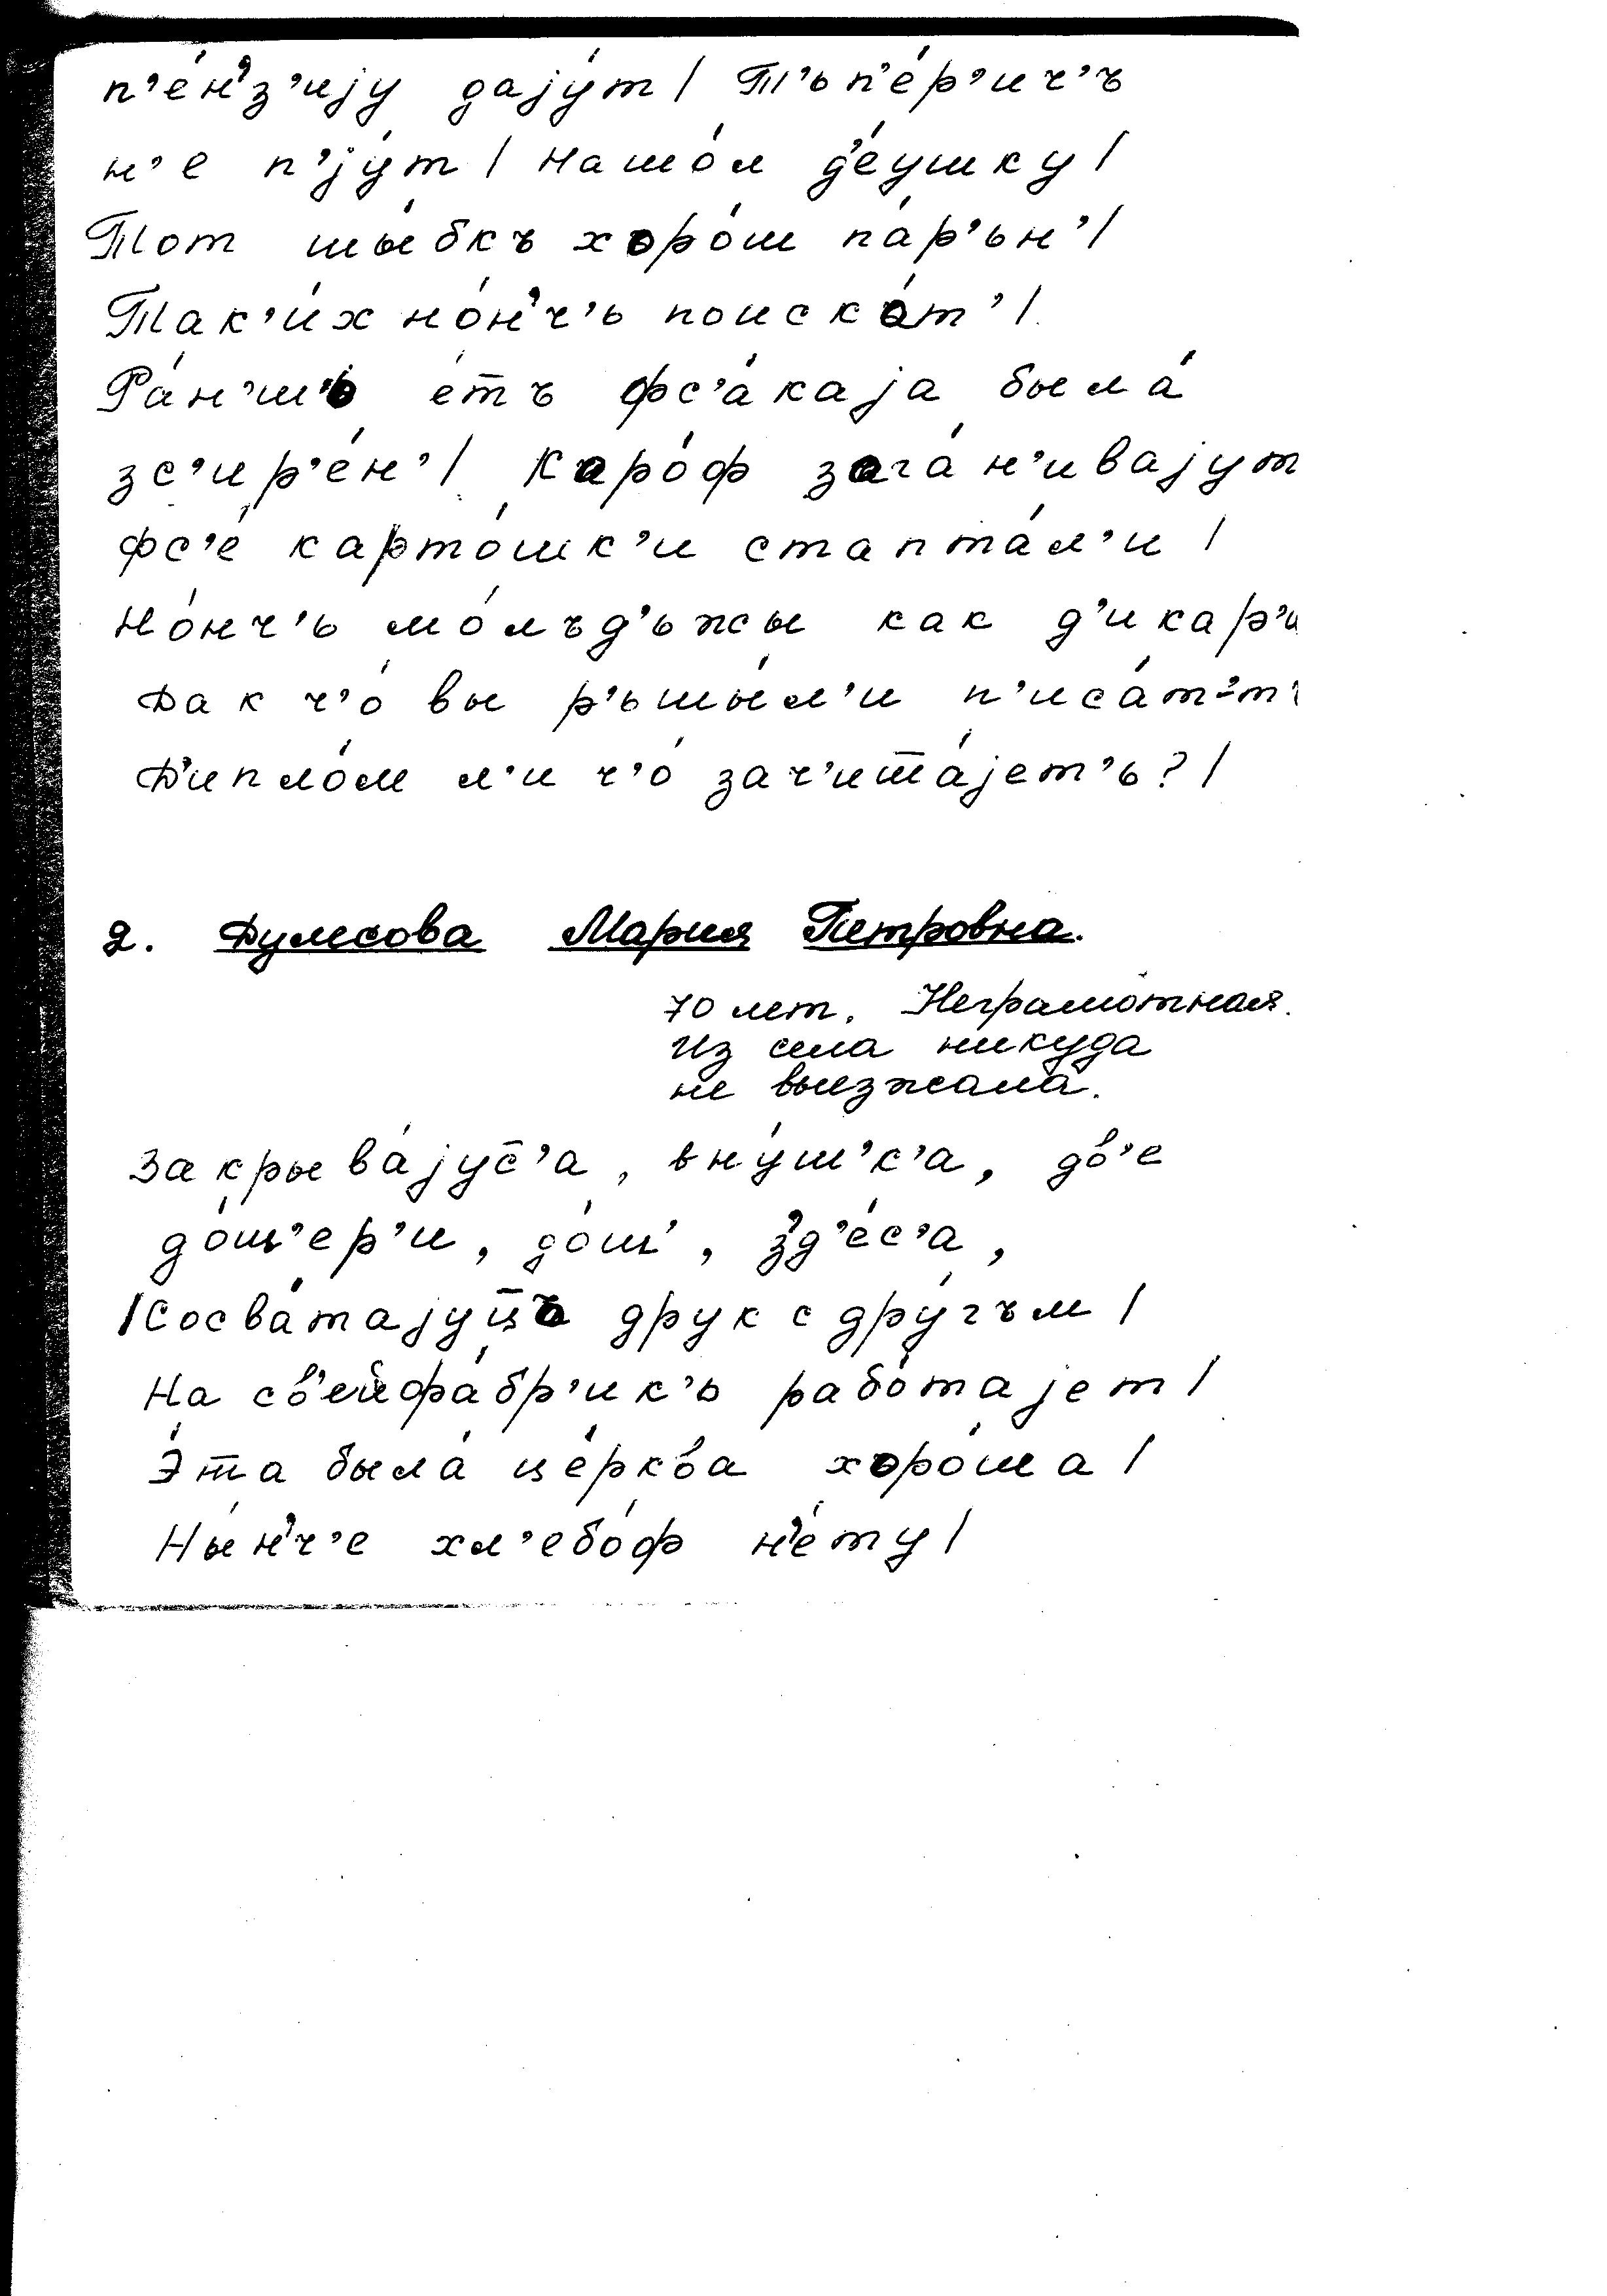 п’е́н’з’ију дају́т / Т’ьп’е́р’ич’ъ
н’е п’ју́т / Нашо́л д’е́ушку /
Тот шы́бкъ хоро́ш па́р’ьн’ /
Так’и́х но́н’ч’ь поиска́т’ /
Ра́н’шъ е́т̄ъ фс’а́каја была́
зс’ир’е́н’ / Каро́ф зага́н’ивајут
фс’е́ карто́шк’и стапта́л’и /
Но́нч’ь мо́лъд’ьжы как д’икар’и
Дак ч’о́ вы р’ьшы́л’и п’иса́т’-т’
Д’ипло́м л’и ч’о́ зач’ит̄а́јет’ь? /
2. Думсова Мария Петровна.
70 лет. Неграмотная.
Из села никуда
не выезжала.
Закрыва́јус̄’а, вну́ш’к’а, дв’е
до́ш’ер’и, до́ш’, з’д’е́с’а,
/ Сосва́тајуц̄ъ друк с дру́гъм /
На св’ейфа́бр’ик’ь рабо́тајет /
Э́т̄а была́ це́рква хоро́ша /
Ны́н’ч’е хл’ебо́ф н’е́ту /